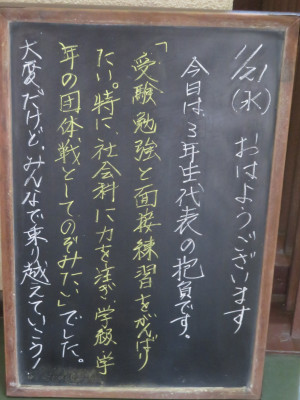 11/21(水) おはようございます
今日は3年生代表の抱負です。
「受験勉強と面接練習をがんばり
たい。特に、社会科に力を注ぎ、学級・学
年の団体戦としてのぞみたい」でした。
大変だけど、みんなで乗り越えていこう!